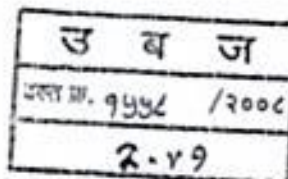 उ ब ज
दस्त क्र. १५५८ /२००८
२-४१